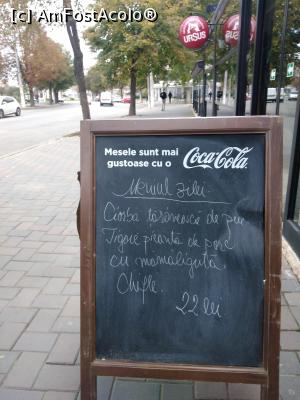 [c] AmFostAcolo®
URSUS
Mesele sunt mai
gustoase cu o Coca-Cola
Meniul zilei
Ciorbă țărănească de pui
Tigaie picantă de porc
cu mămăliguță.
Chifle.
22 lei